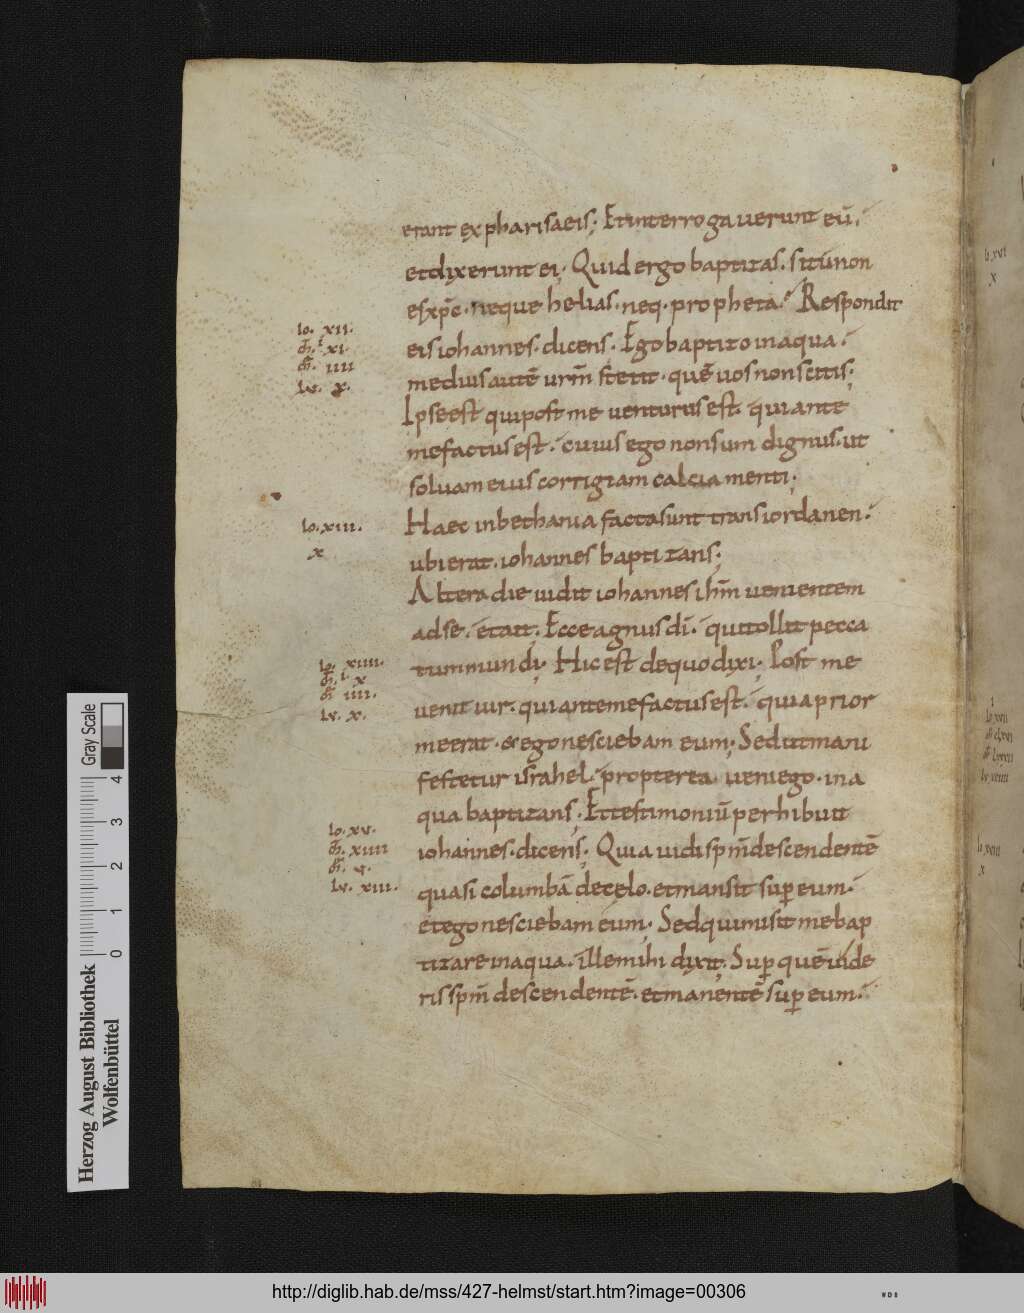 erant ex pharisaeis; Et interrogauerunt eū.
et dixerunt ei; Quid ergo baptizas. si tu non
es xp̄c. neque helias. neq. propheta. Respondit
lo. xii.
m̄. xi.
m̄. iiii
lu. x.
eis iohannes. dicens. Ego baptizo in aqua.
medius autē urm̄ stetit. quē uos non scitis;
Ipse est qui post me uenturus est. qui ante
me factus est. cuius ego non sum dignus. ut
soluam eius corrigiam calciamenti;
lo. xiii.
x
Haec in bethania facta sunt trans iordanen.
ubi erat. iohannes baptizans;
Altera die uidit iohannes ihm̄ uenientem
ad se. et ait; Ecce agnus dī. qui tollit pecca
lo. xiiii.
m̄. i. x
m̄ iiii.
lu. x.
tum mundi; Hic est de quo dixi; Post me
uenit uir. qui ante me factus est. quia prior
me erat. & ego nesciebam eum; Sed ut mani
festetur israhel. propterea ueni ego. in a
qua baptizans; Et testimoniū perhibuit
lo. xv.
m̄. xiiii
m̄. v.
lu. xiii.
iohannes. dicens; Quia uidi spm̄ descendentē
quasi columbā de celo. et mansit sup eum.
et ego nesciebam eum; Sed qui misit me bap
tizare in aqua. ille mihi dixit; Sup quē uide
ris spm̄ descendentē. et manentē sup eum.
Gray Scale
0 1 2 3 4
Herzog August Bibliothek
Wolfenbüttel
http://diglib.hab.de/mss/427-helmst/start.htm?image=00306